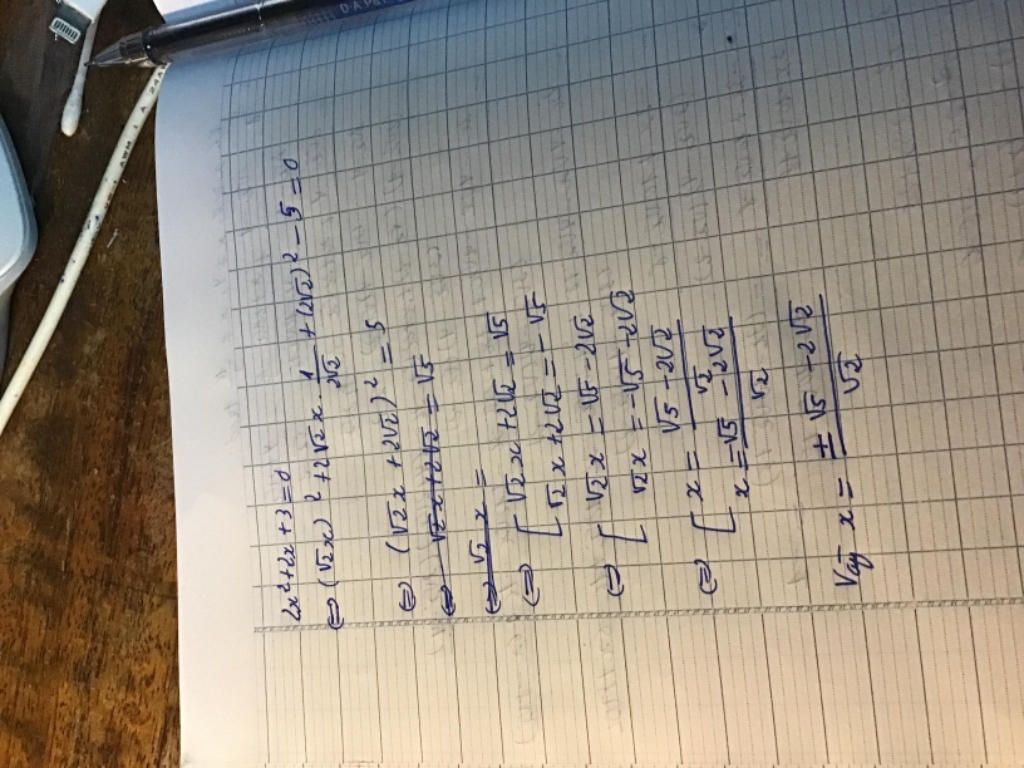 2x²+2x+3=0
⇔ (√2x)² + 2√2x . 1/2√2 + (2√2)² - 5 = 0
⇔ (√2x + 2√2)² = 5
⇔ √2x + 2√2 = √5
⇔ √2 x =
⇔ [ √2x + 2√2 = √5
√2x + 2√2 = -√5
⇔ [ √2x = √5 - 2√2
√2x = -√5 - 2√2
⇔ [ x = √5 - 2√2 / √2
x = -√5 - 2√2 / √2
Vậy x = ± √5 - 2√2 / √2